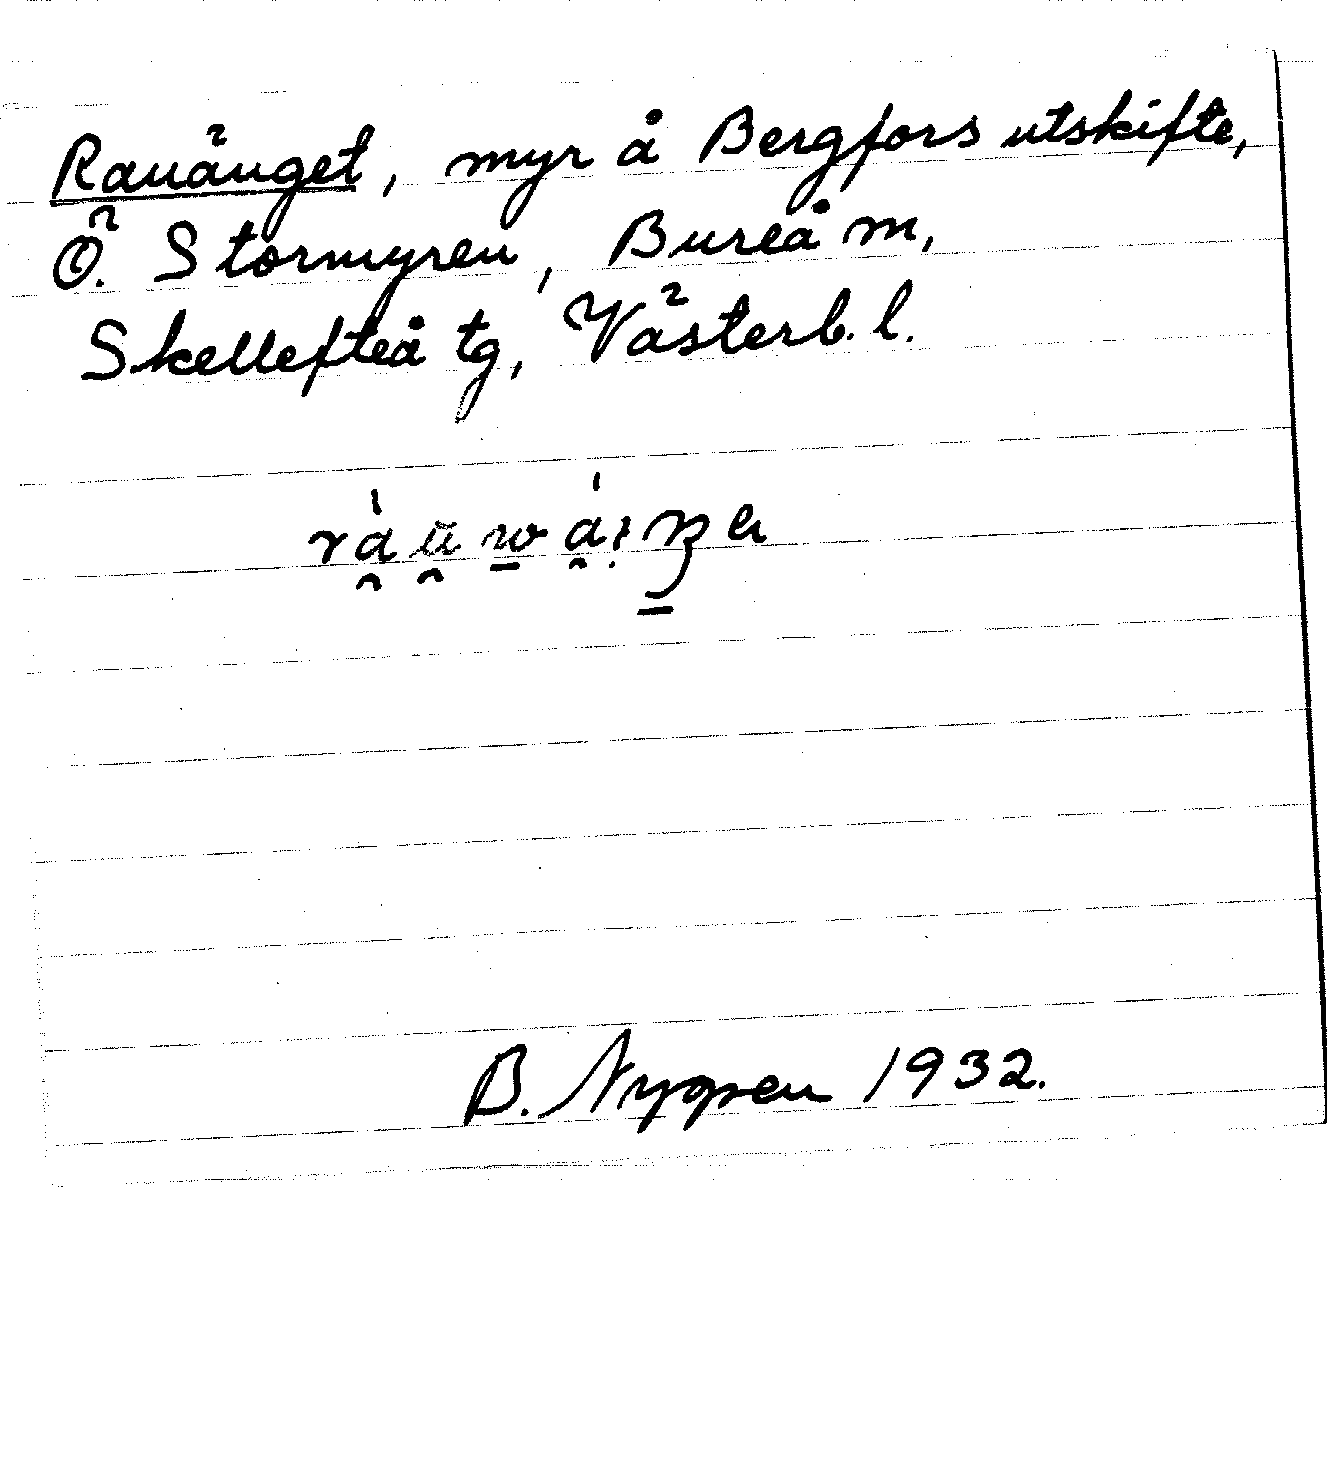 Rauänget, myr å Bergfors utskifte,
Ö. Stormyren, Bureå m,
Skellefteå tg, Västerb. l.
B. Nygren 1932.